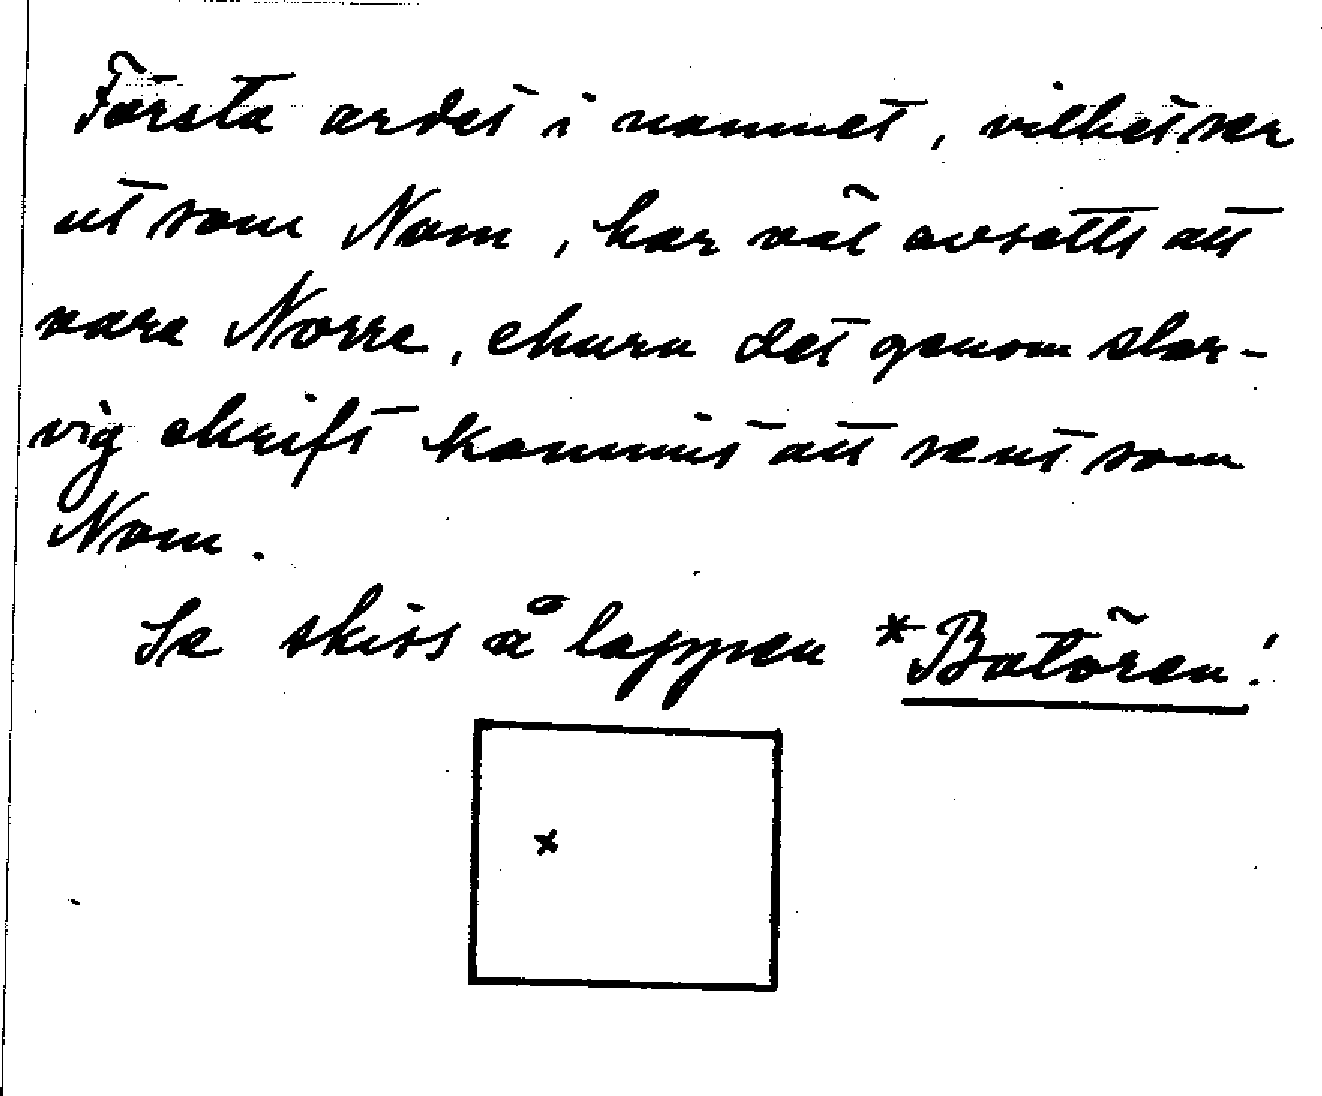 Första ordet i namnet, vilket ser
ut som Nom, har väl avsetts att
vara Norre, ehuru det genom slar-
vig skrift kommit att se ut som
Nom.
Se skiss å lappen *Batören!
x